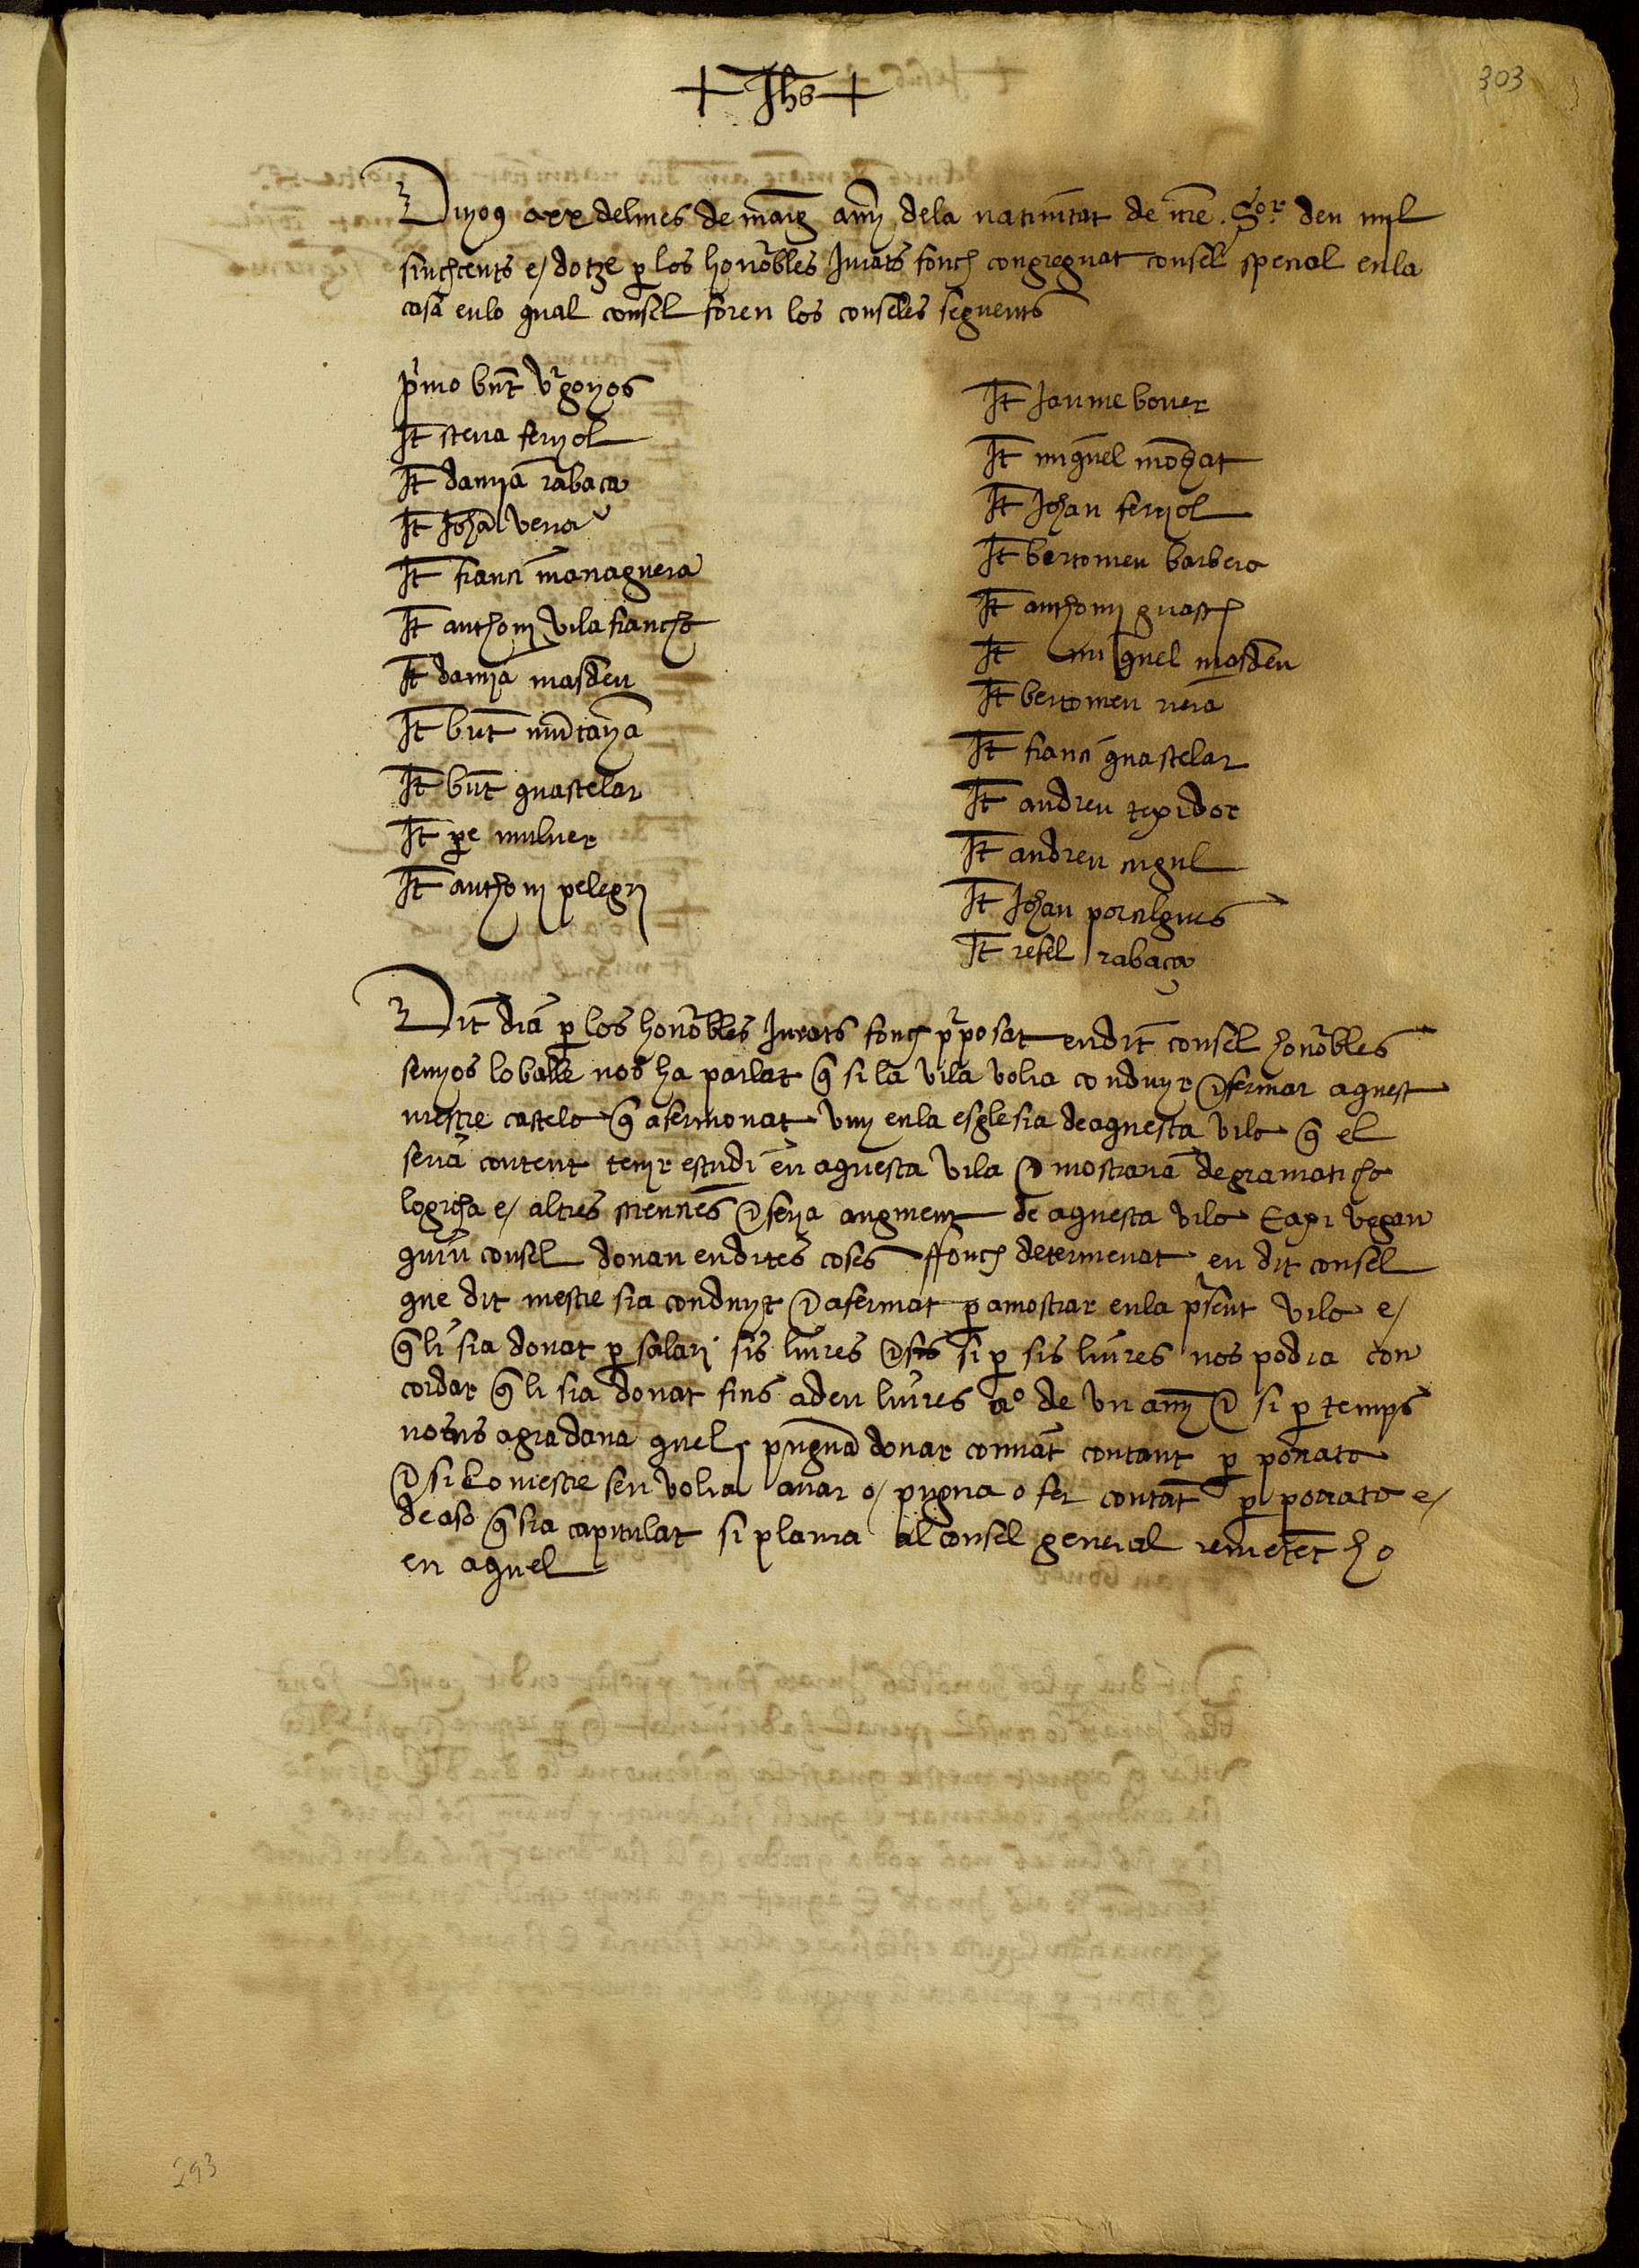 303
+ Jhs +
Diyos a xx del mes de març any dela natiuitat de nre. Sor. deu mil
sinchcents e dotze p los honobles Jurats fonch congreguat consel special enla
casa enlo qual consel foren los conseles seguents
pimo bnt
It steua feryol
It damia rabaça
It Joha vena
It franci managuera
It anthoni vilafrancha
It damia masdeu
It bnt muntaya
It bnt guastelar
It pe muluer
It anthoni pelegri
It Jaume bouer
It miguel monat
It Johan feryol
It bertomeu barbera
It anthoni guasch
It miquel masdeu
It bertomeu riera
It franci guastelar
It andreu texidor
It andreu
It Johan porcilgues
It refel rabaça
Dit dia p los honobles Jurats fonch pposat endit consel honobles
senyos lo balle nos ha parlat q si la vila volia conduyr e fermar aquest
mestre castelo q a sermonat vuy enla esglesia de aquesta vila q el
seria content tenir estudi en aquesta vila e mostraria de gramaticha
logicha e altres sciencies e seria augment de aquesta vila E axi vegau
quin consel donau endites coses ffonch determenat en dit consel
que dit mestre sia conduyt e afermat p amostrar enla psent vila e
q li sia donat p salari sis liures e sis si p sis liures nos podia con
cordar q li sia donat fins a deu liures ao de vn any e si p temps
nosns agradaua quel pugua donar comiat contant p porrata
e si lo mestre sen volia anar o pugua o fer contat p porrata e
de aso q sia capitulat si plaura al consel general remetet ho
en aquel
293